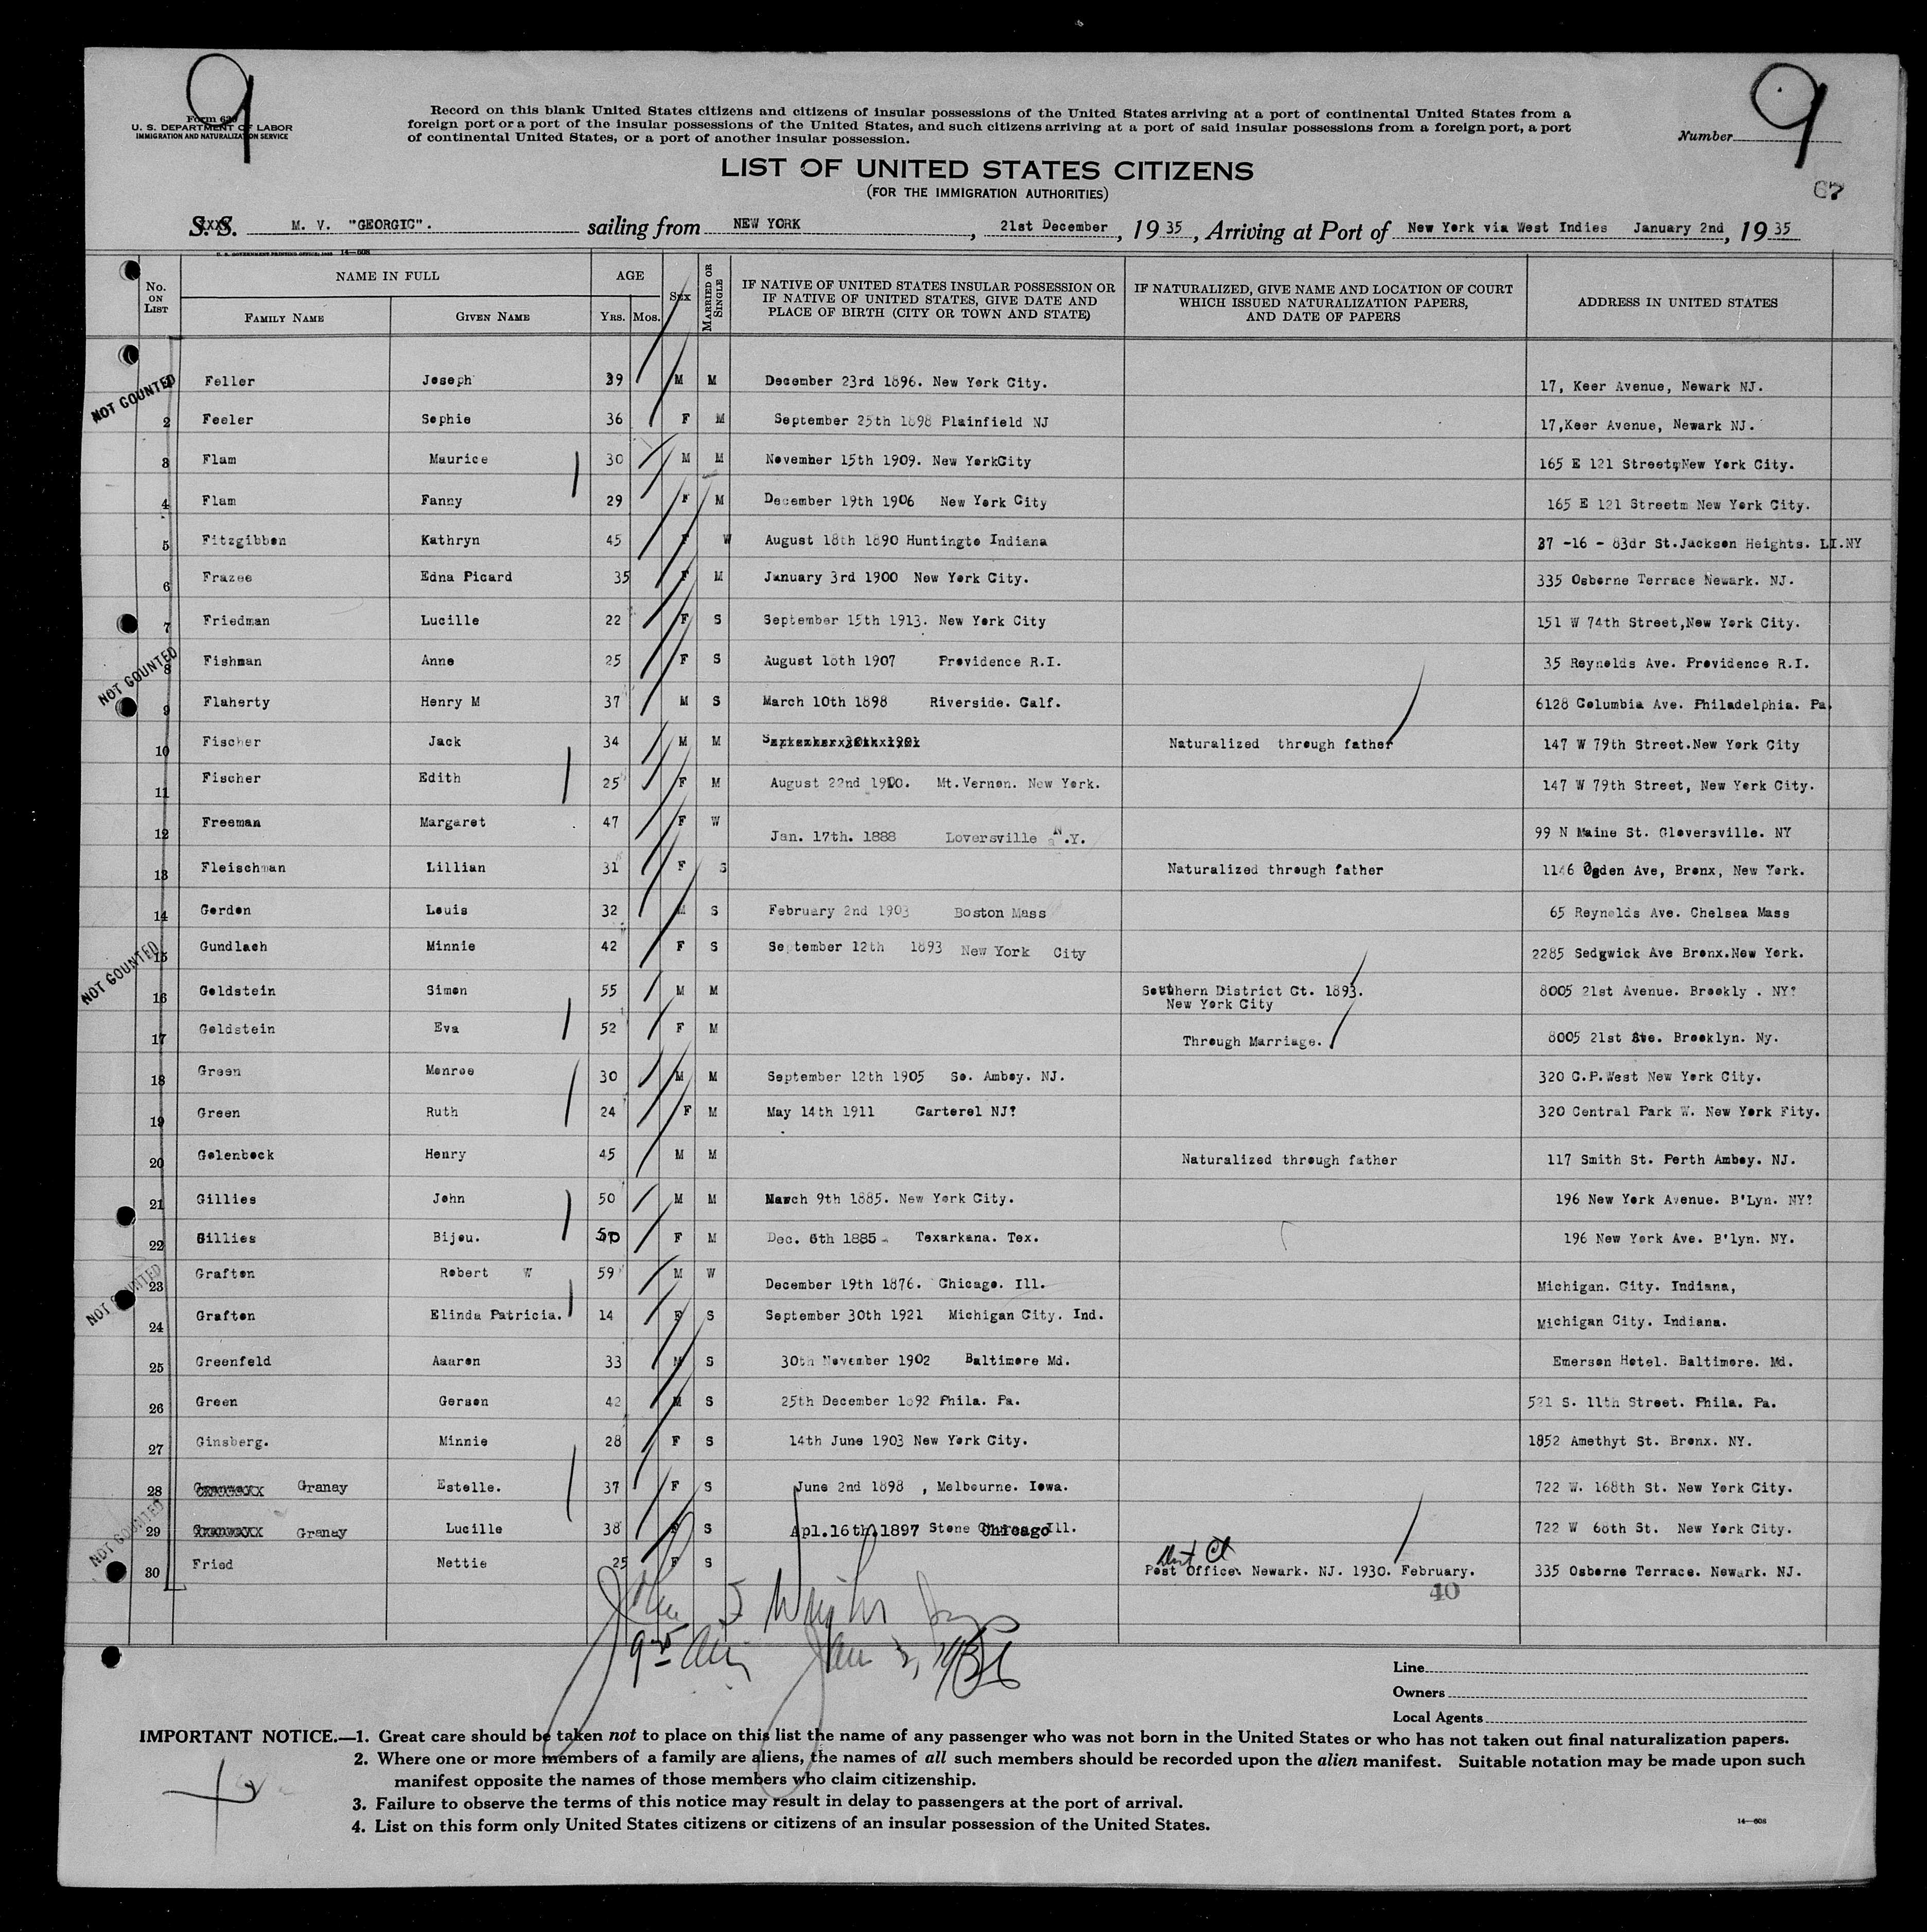 9
9
Form 630
U. S. DEPARTMENT OF LABOR
IMMIGRATION AND NATURALIZATION SERVICE
Record on this blank United States citizens and citizens of insular possessions of the United States arriving at a port of continental United States from a
foreign port or a port of the insular possessions of the United States, and such citizens arriving at a port of said insular possessions from a foreign port, a port
of continental United States, or a port of another insular possession.
Number
LIST OF UNITED STATES CITIZENS
(FOR THE IMMIGRATION AUTHORITIES)
67
S. S. M. V. "GEORGIC". sailing from NEW YORK, 21st December, 1935, Arriving at Port of New York via West Indies January 2nd, 1935
U. S. GOVERNMENT PRINTING OFFICE: 14—608
No. ON LIST NAME IN FULL AGE SEX MARRIED OR SINGLE IF NATIVE OF UNITED STATES INSULAR POSSESSION OR IF NATIVE OF UNITED STATES, GIVE DATE AND PLACE OF BIRTH (CITY OR TOWN AND STATE) IF NATURALIZED, GIVE NAME AND LOCATION OF COURT WHICH ISSUED NATURALIZATION PAPERS, AND DATE OF PAPERS ADDRESS IN UNITED STATES
FAMILY NAME GIVEN NAME YRS. MOS.
NOT COUNTED
1 Feller Joseph 39 M M December 23rd 1896. New York City. 17, Keer Avenue, Newark NJ.
2 Feeler Sophie 36 F M September 25th 1898 Plainfield NJ 17,Keer Avenue, Newark NJ.
3 Flam Maurice 30 M M November 15th 1909. New YorkCity 165 E 121 Street,New York City.
4 Flam Fanny 29 F M December 19th 1906 New York City 165 E 121 Streetm New York City.
5 Fitzgibbon Kathryn 45 F W August 18th 1890 Huntingto Indiana 37 -16 - 83dr St.Jackson Heights. LI.NY
6 Frazee Edna Picard 35 F M January 3rd 1900 New York City. 335 Osborne Terrace Newark. NJ.
7 Friedman Lucille 22 F S September 15th 1913. New York City 151 W 74th Street,New York City.
NOT COUNTED
8 Fishman Anne 25 F S August 18th 1907 Providence R.I. 35 Reynolds Ave. Providence R.I.
9 Flaherty Henry M 37 M S March 10th 1898 Riverside. Calf. 6128 Columbia Ave. Philadelphia. Pa.
10 Fischer Jack 34 M M Naturalized through father 147 W 79th Street.New York City
11 Fischer Edith 25 F M August 22nd 1910. Mt.Vernon. New York. 147 W 79th Street, New York City.
12 Freeman Margaret 47 F W Jan. 17th. 1888 Loversville N.Y. 99 N Maine St. Gloversville. NY
13 Fleischman Lillian 31 F S Naturalized through father 1146 Ogden Ave, Bronx, New York.
14 Gordon Louis 32 M S February 2nd 1903 Boston Mass 65 Reynolds Ave. Chelsea Mass
NOT COUNTED
15 Gundlach Minnie 42 F S September 12th 1893 New York City 2285 Sedgwick Ave Bronx.New York.
16 Goldstein Simon 55 M M Southern District Ct. 1893. New York City 8005 21st Avenue. Brookly . NY?
17 Goldstein Eva 52 F M Through Marriage. 8005 21st Ave. Brooklyn. Ny.
18 Green Monroe 30 M M September 12th 1905 So. Amboy. NJ. 320 C.P.West New York City.
19 Green Ruth 24 F M May 14th 1911 Carterel NJ? 320 Central Park W. New York Fity.
20 Golenbock Henry 45 M M Naturalized through father 117 Smith St. Perth Amboy. NJ.
21 Gillies John 50 M M March 9th 1885. New York City. 196 New York Avenue. B'Lyn. NY?
22 Gillies Bijou. 50 F M Dec. 6th 1885 Texarkana. Tex. 196 New York Ave. B'lyn. NY.
NOT COUNTED
23 Grafton Robert W 59 M W December 19th 1876. Chicago. Ill. Michigan. City. Indiana,
24 Grafton Elinda Patricia. 14 F S September 30th 1921 Michigan City. Ind. Michigan City. Indiana.
25 Greenfeld Aaaron 33 M S 30th November 1902 Baltimore Md. Emerson Hotel. Baltimore. Md.
26 Green Gerson 42 M S 25th December 1892 Phila. Pa. 521 S. 11th Street. Phila. Pa.
27 Ginsberg. Minnie 28 F S 14th June 1903 New York City. 1852 Amethyt St. Bronx. NY.
28 Granay Estelle. 37 F S June 2nd 1898 , Melbourne. Iowa. 722 W. 168th St. New York City.
NOT COUNTED
29 Granay Lucille 38 F S Apl.16th.1897 Stone Chicago Ill. 722 W 68th St. New York City.
30 Fried Nettie 25 F S Dist Ct Post Office. Newark. NJ. 1930. February. 335 Osborne Terrace. Newark. NJ.
40
John S Wright
Jan 2, 1936
Line
Owners
Local Agents
IMPORTANT NOTICE.—1. Great care should be taken not to place on this list the name of any passenger who was not born in the United States or who has not taken out final naturalization papers.
2. Where one or more members of a family are aliens, the names of all such members should be recorded upon the alien manifest. Suitable notation may be made upon such
manifest opposite the names of those members who claim citizenship.
3. Failure to observe the terms of this notice may result in delay to passengers at the port of arrival.
4. List on this form only United States citizens or citizens of an insular possession of the United States.
14—608